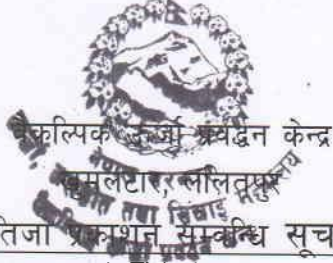 वैकल्पिक ऊर्जा प्रवर्द्धन केन्द्र
खुमलटार, ललितपुर
तथा सिंचाइ
तिजा प्रकाशन सम्बन्धि सूच